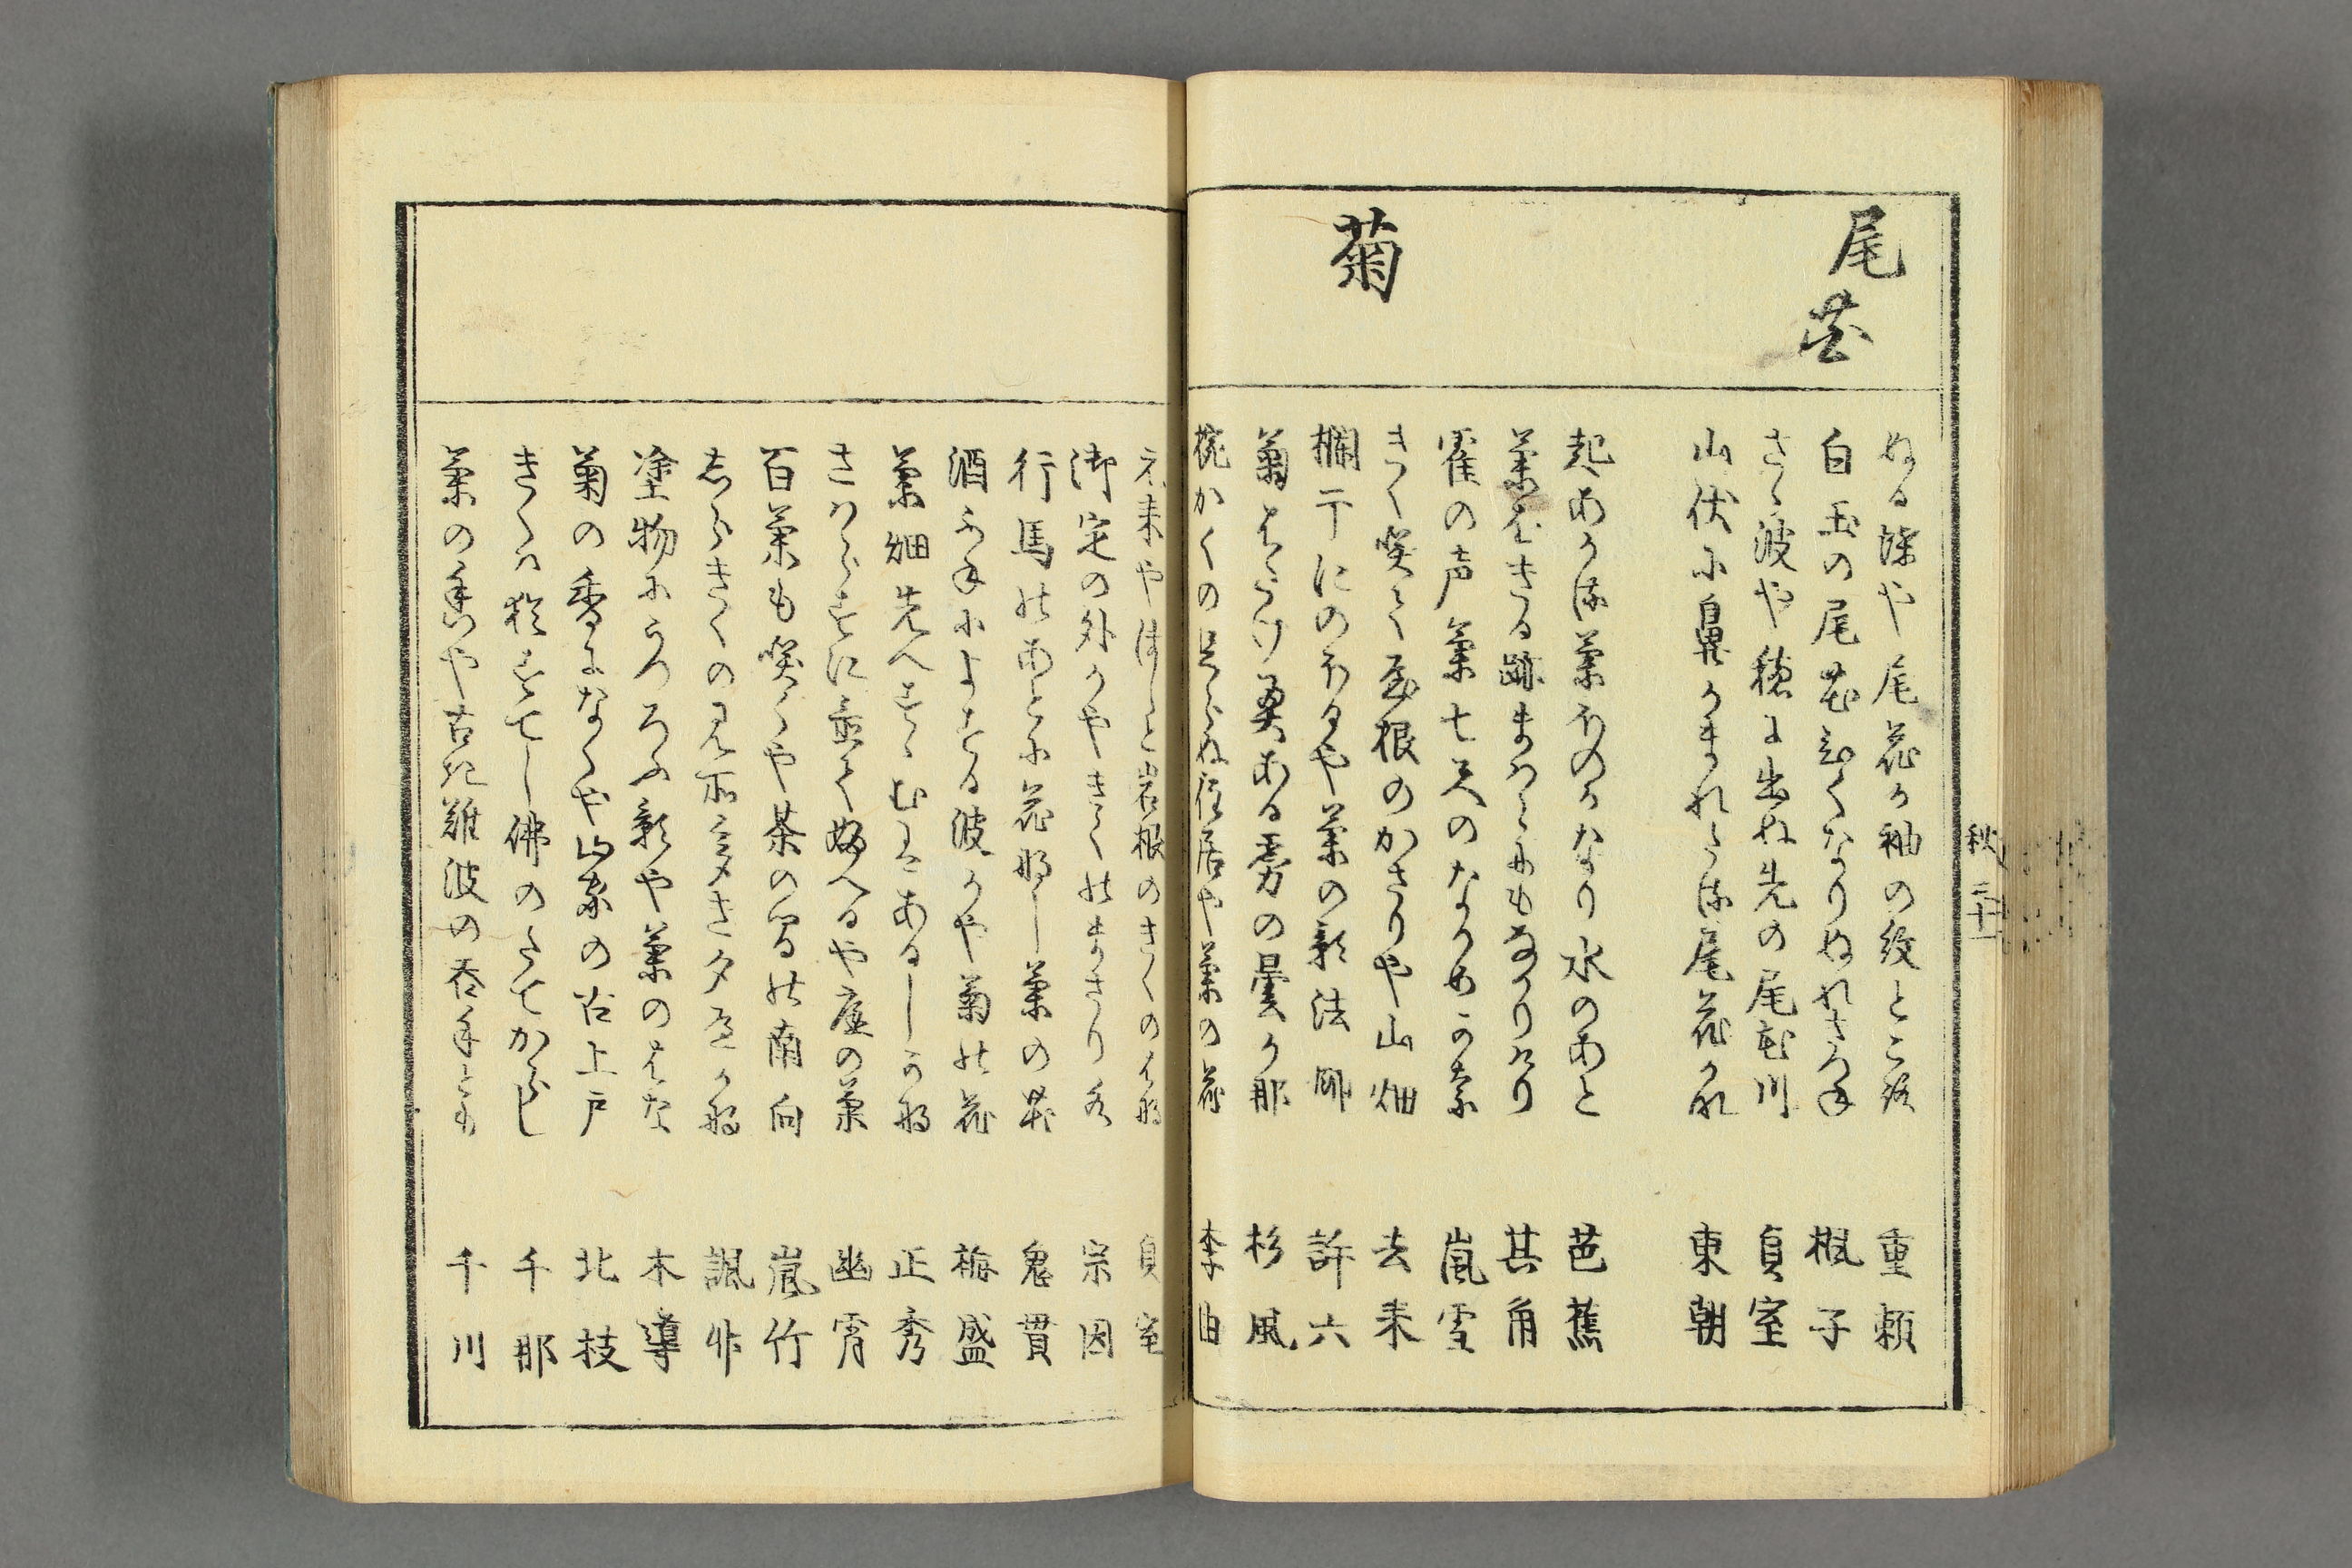 尾花
ぬる蝶や尾花か袖の紋とこ路 重頼
白玉の尾花もくなりぬれさろね 楓子
さゝ波や穂に出ぬ先の尾花川 貞室
山伏に鼻かまれたる尾花かな 東朝
菊
起あかる菊ほのかなり水のあと 芭蕉
菊をきる跡まはらにもなかりけり 其角
雀の声菊七尺のなかめかな 嵐雪
きく咲て屋根のかさりや山畑 去来
欄干にのほるや菊の影法師 許六
菊はたけ奥ある霧の曇り哉 杉風
椀かくの足らぬ住居や菊の花 李由
元来やほしと岩根のきくのはな 貞室
御定の外かやきくのまさり 宗因
行馬のあとに花なし菊の花 鬼貫
酒ふねによする波かや菊の花 梅盛
菊畑先へすゝむはあるしかな 正秀
さはらすに並て妙へるや庭の菊 幽宵
百菊も咲くや茶の間の南向 嵐竹
しらきくの見所多き夕アかな 諷竹
塗物にうつろふ影や菊のはな 木導
菊の香になくや山家の俗上戸 北枝
きくは猶そてし佛のたてからし 千那
菊の香や古き難波の呑手とも 千川
秋 三十一